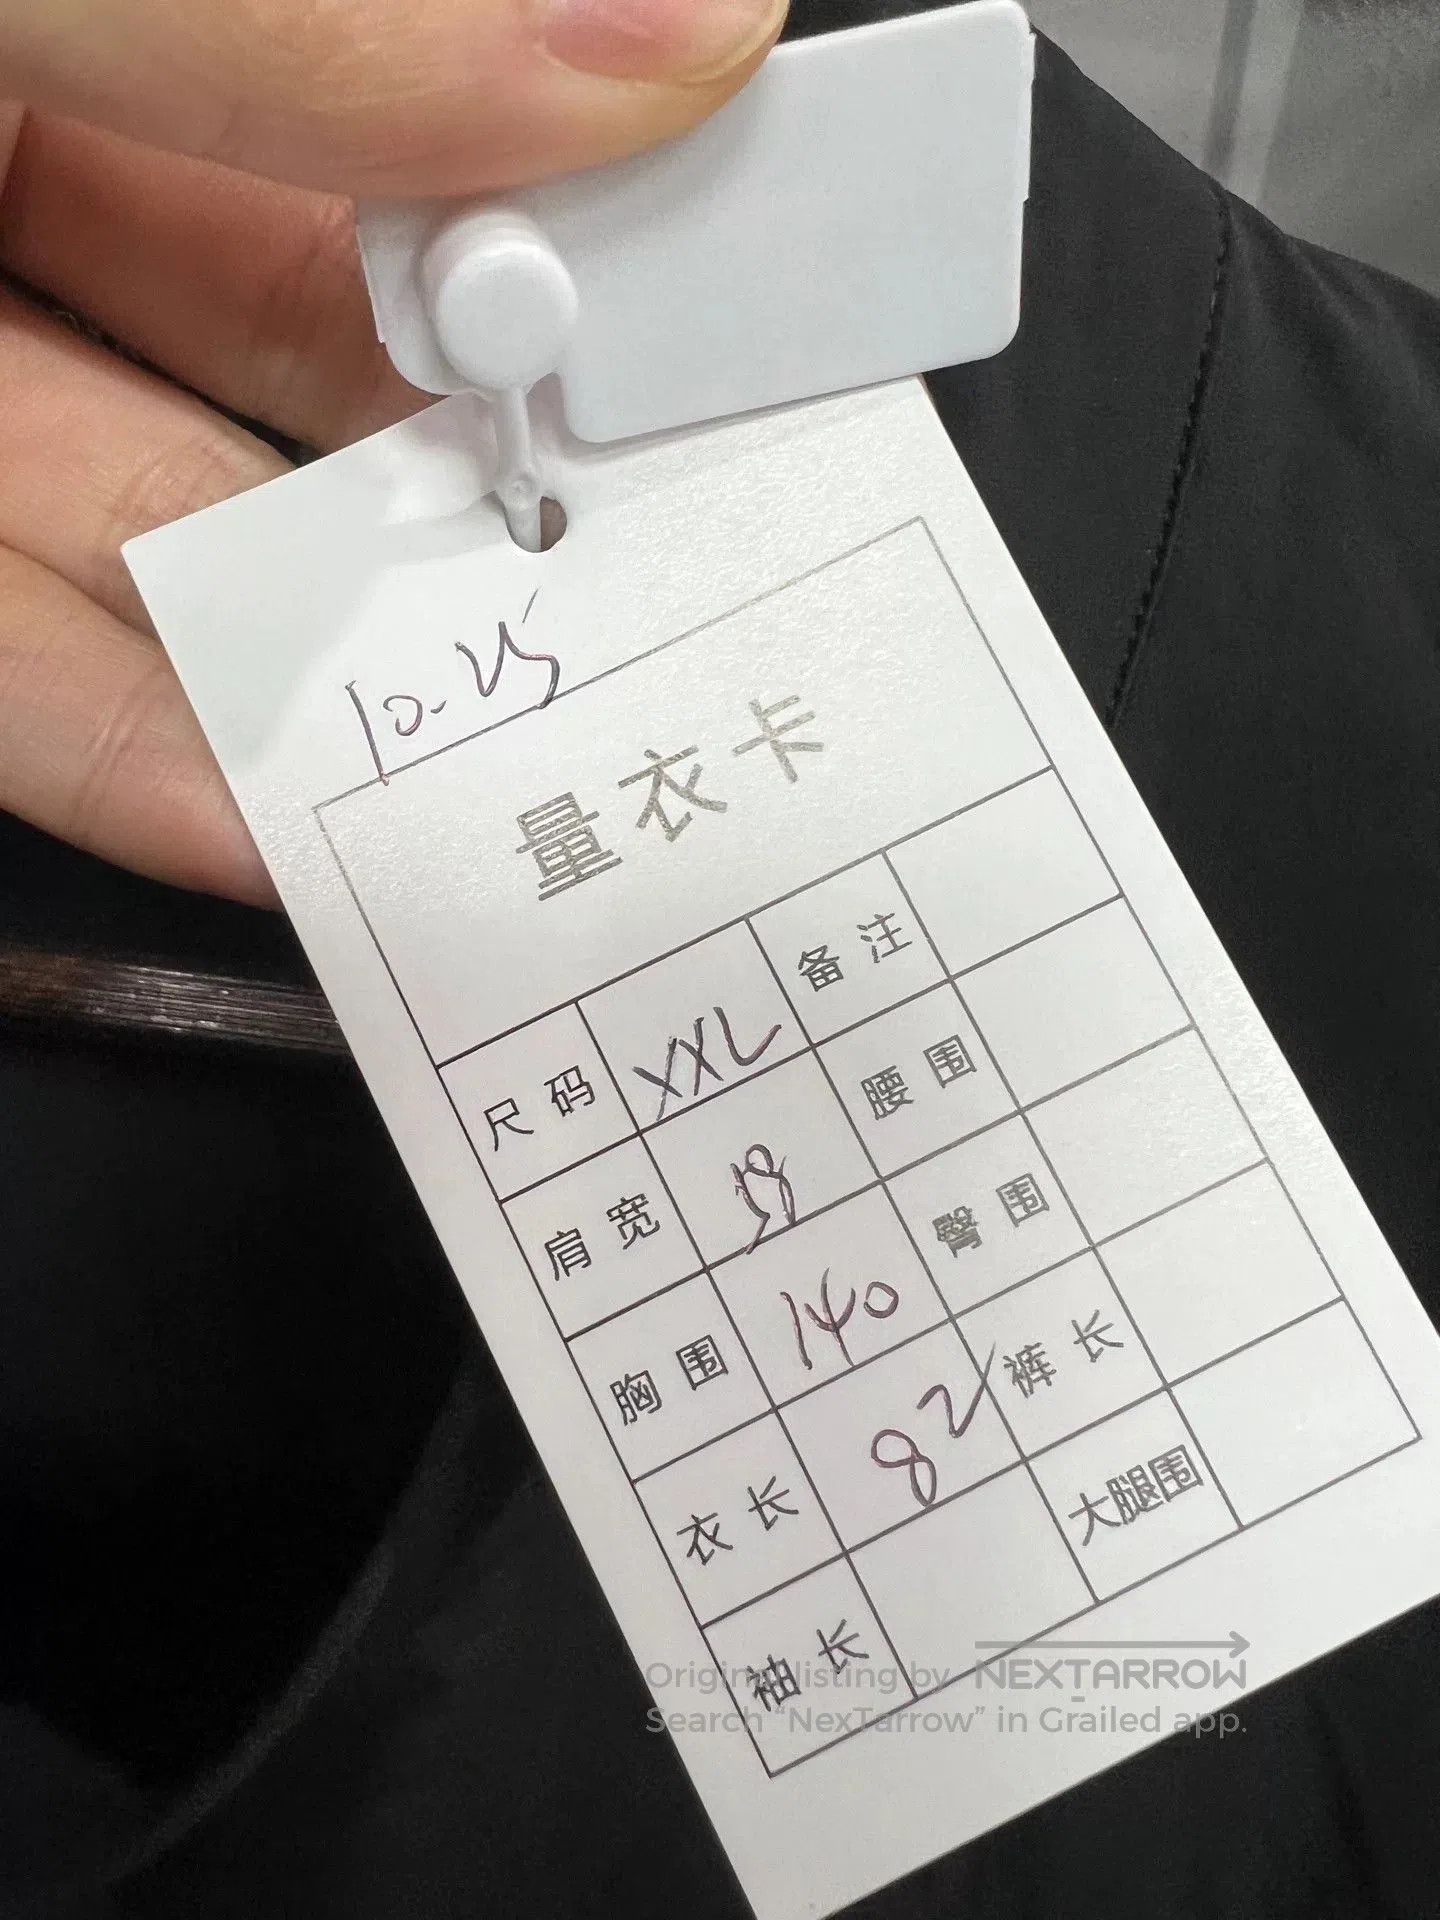 10.25
量衣卡
尺码 XXL 备注
肩宽 腰围
胸围 140 臀围
衣长 82 裤长
袖长 大腿围
Original listing by NEXTARROW
Search “NexTarrow” in Grailed app.